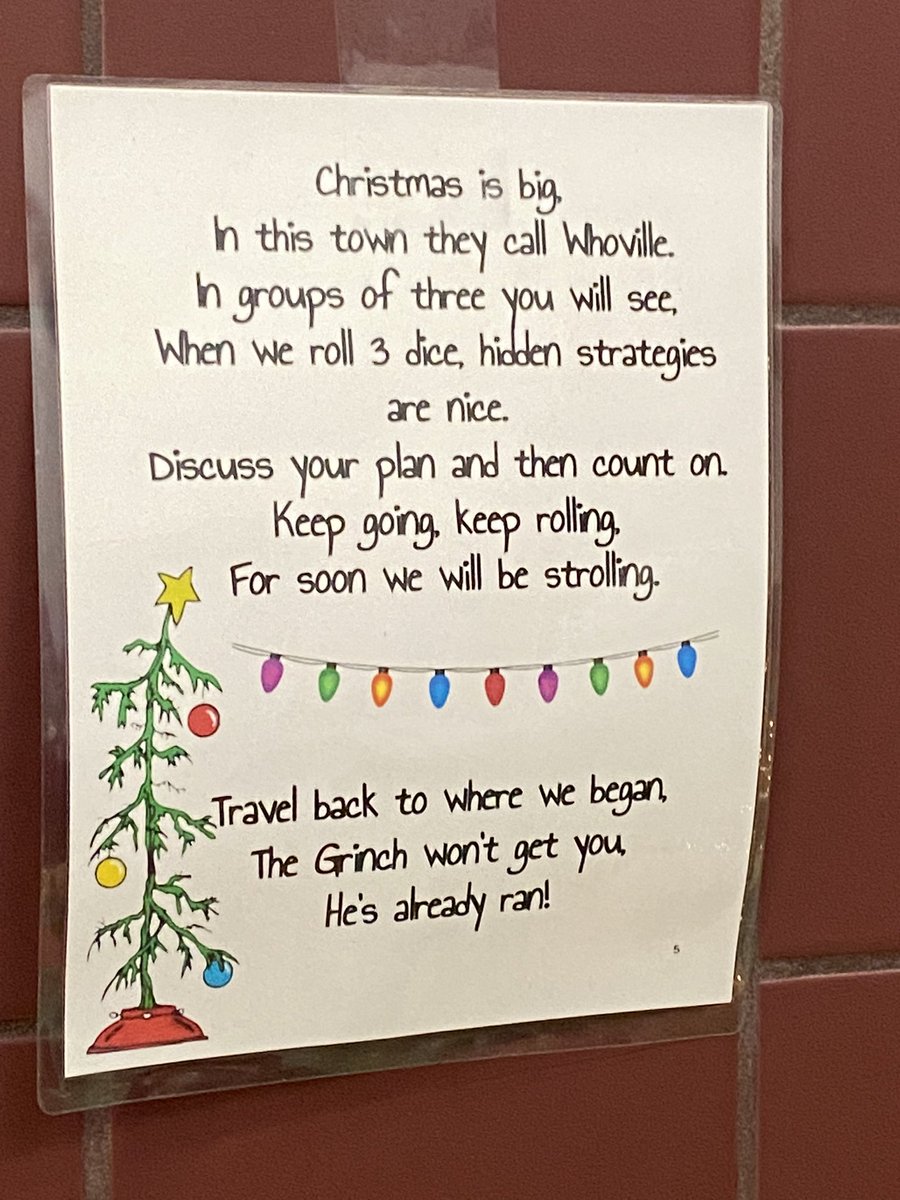 Christmas is big,
In this town they call Whoville.
In groups of three you will see,
When we roll 3 dice, hidden strategies
are nice.
Discuss your plan and then count on.
Keep going, keep rolling,
For soon we will be strolling.
Travel back to where we began,
The Grinch won't get you,
He's already ran!
5